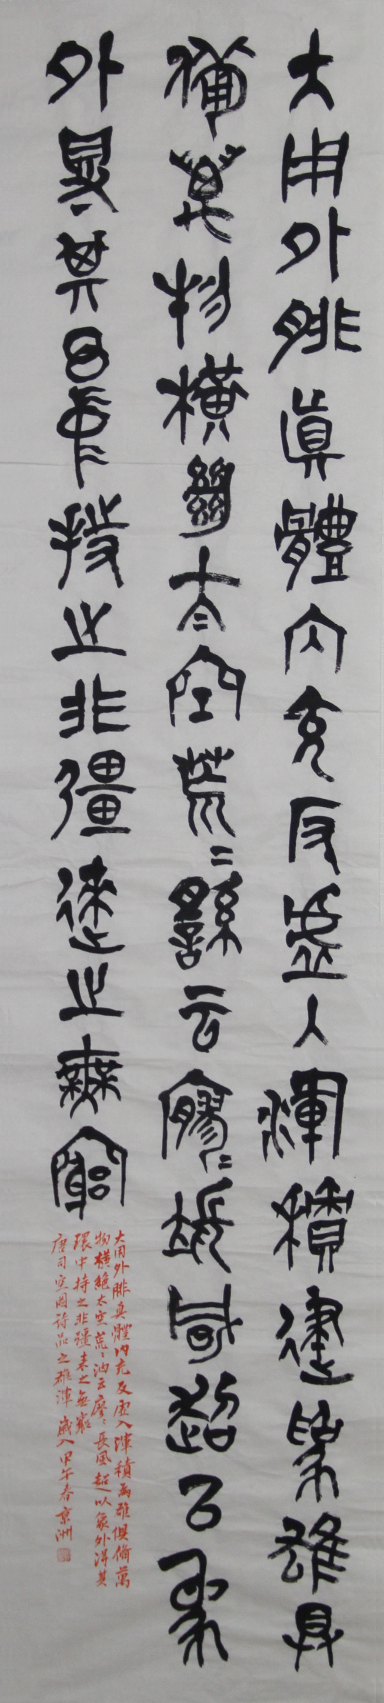 大用外腓真體內充反虛入渾積健為雄具
備萬物橫絕太〻空荒〻油云寥〻長風超以象
外得其環中持之非彊來之無窮
大用外腓真體內充反虛入渾積為雄俱備萬
物橫絕太空荒〻油云寥〻長風超以象外得其
環中持之非彊來之無窮
唐司空圖詩品之雄渾 歲入甲午春京洲